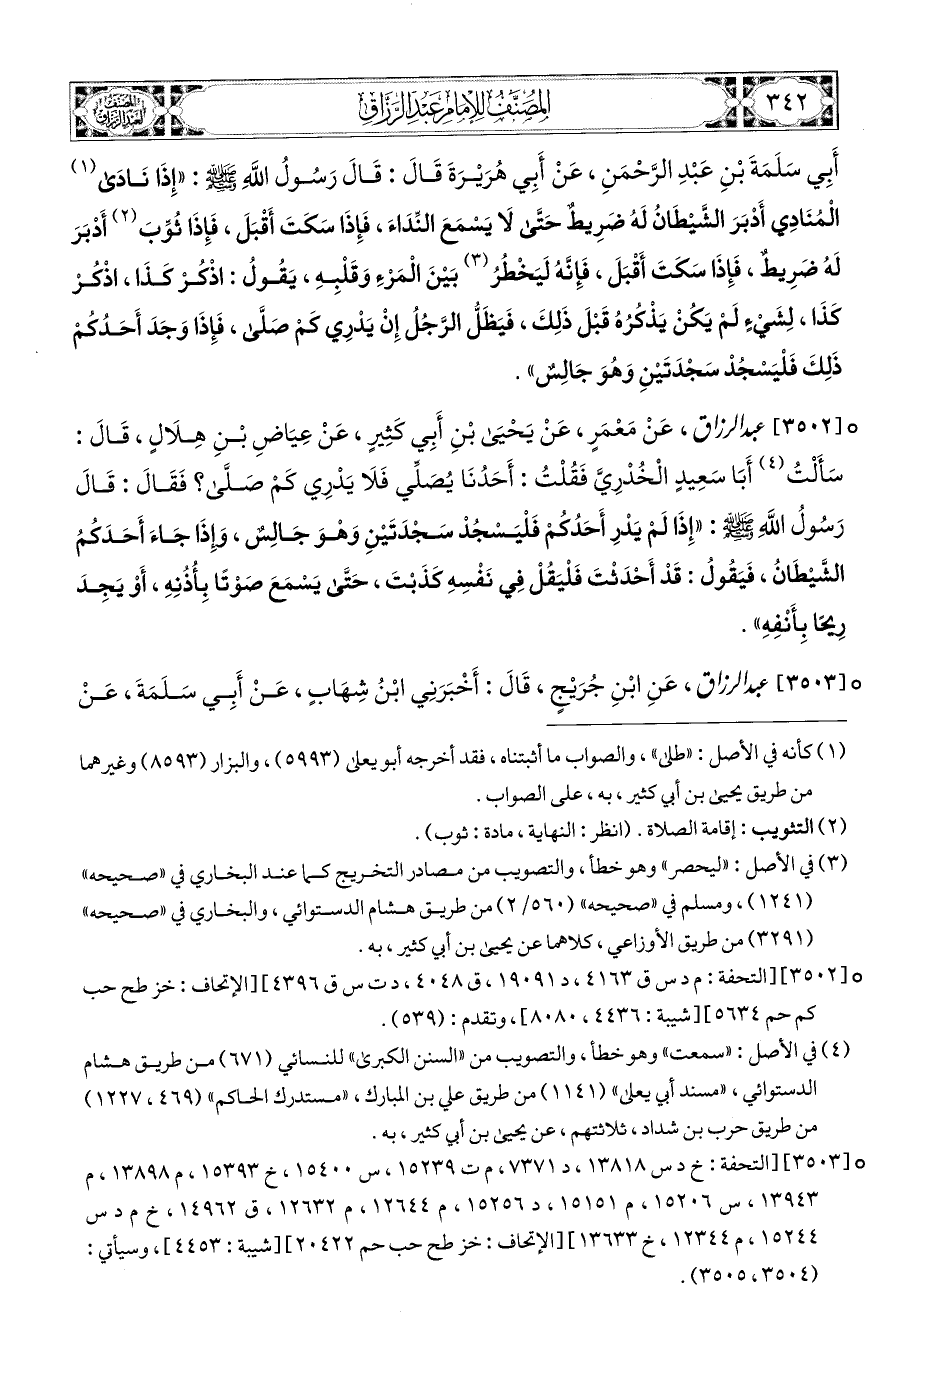 ٣٤٢
المصنف للإمام عبد الرزاق
المصنف لعبد الرزاق
أَبِي سَلَمَةَ بْنِ عَبْدِ الرَّحْمَنِ، عَنْ أَبِي هُرَيْرَةَ قَالَ: قَالَ رَسُولُ اللَّهِ ﷺ: «إِذَا نَادَىٰ(١)
الْمُنَادِي أَدْبَرَ الشَّيْطَانُ لَهُ ضَرِيطٌ حَتَّىٰ لَا يَسْمَعَ النِّدَاءَ، فَإِذَا سَكَتَ أَقْبَلَ، فَإِذَا ثُوِّبَ(٢) أَدْبَرَ
لَهُ ضَرِيطٌ، فَإِذَا سَكَتَ أَقْبَلَ، فَإِنَّهُ لَيَخْطُرُ(٣) بَيْنَ الْمَرْءِ وَقَلْبِهِ، يَقُولُ: اذْكُرْ كَذَا، اذْكُرْ
كَذَا، لِشَيْءٍ لَمْ يَكُنْ يَذْكُرُهُ قَبْلَ ذَلِكَ، فَيَظَلُّ الرَّجُلُ إِنْ يَدْرِي كَمْ صَلَّىٰ، فَإِذَا وَجَدَ أَحَدُكُمْ
ذَلِكَ فَلْيَسْجُدْ سَجْدَتَيْنِ وَهُوَ جَالِسٌ».
○ [٣٥٠٢] عبد الرزاق، عَنْ مَعْمَرٍ، عَنْ يَحْيَىٰ بْنِ أَبِي كَثِيرٍ، عَنْ عِيَاضِ بْنِ هِلَالٍ، قَالَ:
سَأَلْتُ(٤) أَبَا سَعِيدٍ الْخُدْرِيَّ فَقُلْتُ: أَحَدُنَا يُصَلِّي فَلَا يَدْرِي كَمْ صَلَّىٰ؟ فَقَالَ: قَالَ
رَسُولُ اللَّهِ ﷺ: «إِذَا لَمْ يَدْرِ أَحَدُكُمْ فَلْيَسْجُدْ سَجْدَتَيْنِ وَهْوَ جَالِسٌ، وَإِذَا جَاءَ أَحَدَكُمُ
الشَّيْطَانُ، فَيَقُولُ: قَدْ أَحْدَثْتَ فَلْيَقُلْ فِي نَفْسِهِ كَذَبْتَ، حَتَّىٰ يَسْمَعَ صَوْتًا بِأُذُنِهِ، أَوْ يَجِدَ
رِيحًا بِأَنْفِهِ».
○ [٣٥٠٣] عبد الرزاق، عَنِ ابْنِ جُرَيْجٍ، قَالَ: أَخْبَرَنِي ابْنُ شِهَابٍ، عَنْ أَبِي سَلَمَةَ، عَنْ
(١) كأنه في الأصل: «طلى»، والصواب ما أثبتناه، فقد أخرجه أبو يعلى (٥٩٩٣)، والبزار (٨٥٩٣) وغيرهما
من طريق يحيى بن أبي كثير، به، على الصواب.
(٢) التثويب: إقامة الصلاة. (انظر: النهاية، مادة: ثوب).
(٣) في الأصل: «ليحصر» وهو خطأ، والتصويب من مصادر التخريج كما عند البخاري في «صحيحه»
(١٢٤١)، ومسلم في «صحيحه» (٢/٥٦٠) من طريق هشام الدستوائي، والبخاري في «صحيحه»
(٣٢٩١) من طريق الأوزاعي، كلاهما عن يحيى بن أبي كثير، به.
○ [٣٥٠٢] [التحفة: م د س ق ٤١٦٣، د ١٩٠٩١، ق ٤٠٤٨، د ت س ق ٤٣٩٦] [الإتحاف: خز طح حب
كم حم ٥٦٣٤] [شيبة: ٤٤٣٦، ٨٠٨٠]، وتقدم: (٥٣٩).
(٤) في الأصل: «سمعت» وهو خطأ، والتصويب من «السنن الكبرى» للنسائي (٦٧١) من طريق هشام
الدستوائي، «مسند أبي يعلى» (١١٤١) من طريق علي بن المبارك، «مستدرك الحاكم» (٤٦٩، ١٢٢٧)
من طريق حرب بن شداد، ثلاثتهم، عن يحيى بن أبي كثير، به.
○ [٣٥٠٣] [التحفة: خ د س ١٣٨١٨، د ٧٣٧١، م ت ١٥٢٣٩، س ١٥٤٠٠، خ ١٥٣٩٣، م ١٣٨٩٨، م
١٣٩٤٣، س ١٥٢٠٦، م ١٥١٥١، د ١٥٢٥٦، م ١٢٦٤٤، م ١٢٦٣٢، ق ١٤٩٦٢، خ م د س
١٥٢٤٤، م ١٢٣٤٤، خ ١٣٦٣٣] [الإتحاف: خز طح حب حم ٢٠٤٢٢] [شيبة: ٤٤٥٣]، وسيأتي:
(٣٥٠٤، ٣٥٠٥).